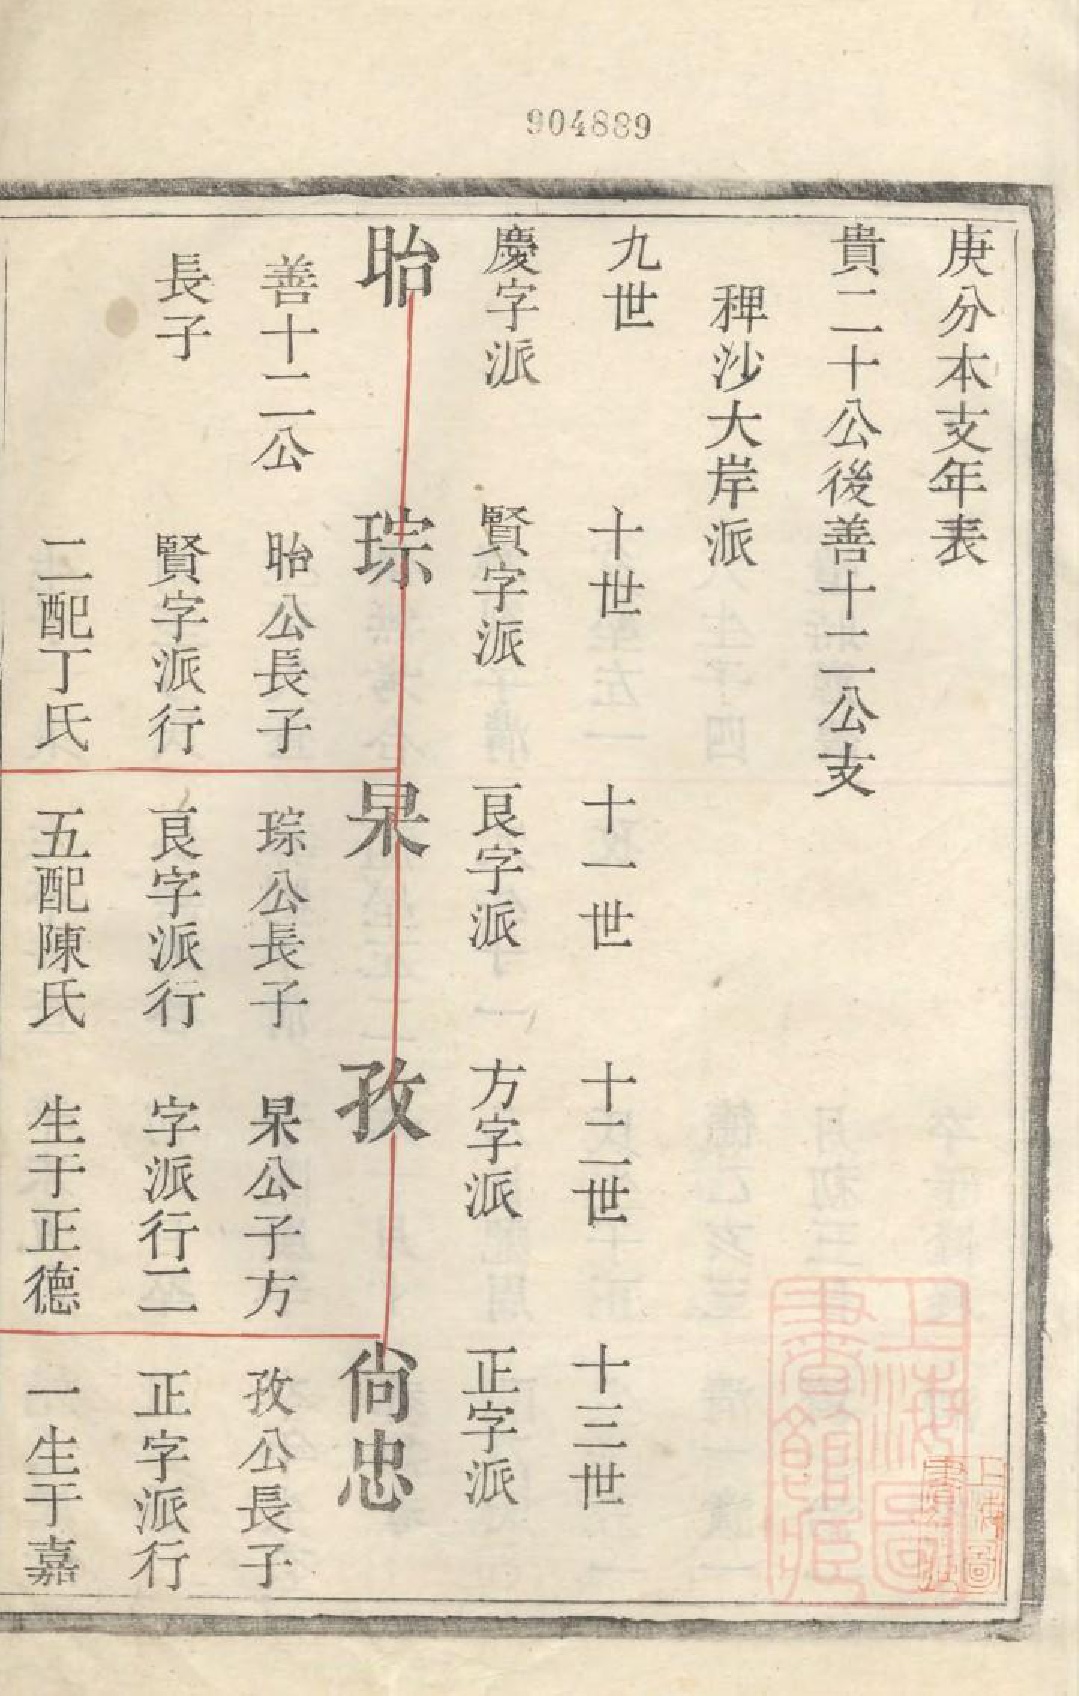 904889
庚分本支年表
貴二十公後善十二公支
稗沙大岸派
九世
十世
十一世
十二世
十三世
慶字派
賢字派
良字派
方字派
正字派
昣
琮
杲
孜
尙忠
善十二公
昣公長子
琮公長子
杲公子方
孜公長子
長子
賢字派行
良字派行
字派行二
正字派行
二配丁氏
五配陳氏
生于正德
一生于嘉
上海圖書館藏
上海圖書館藏